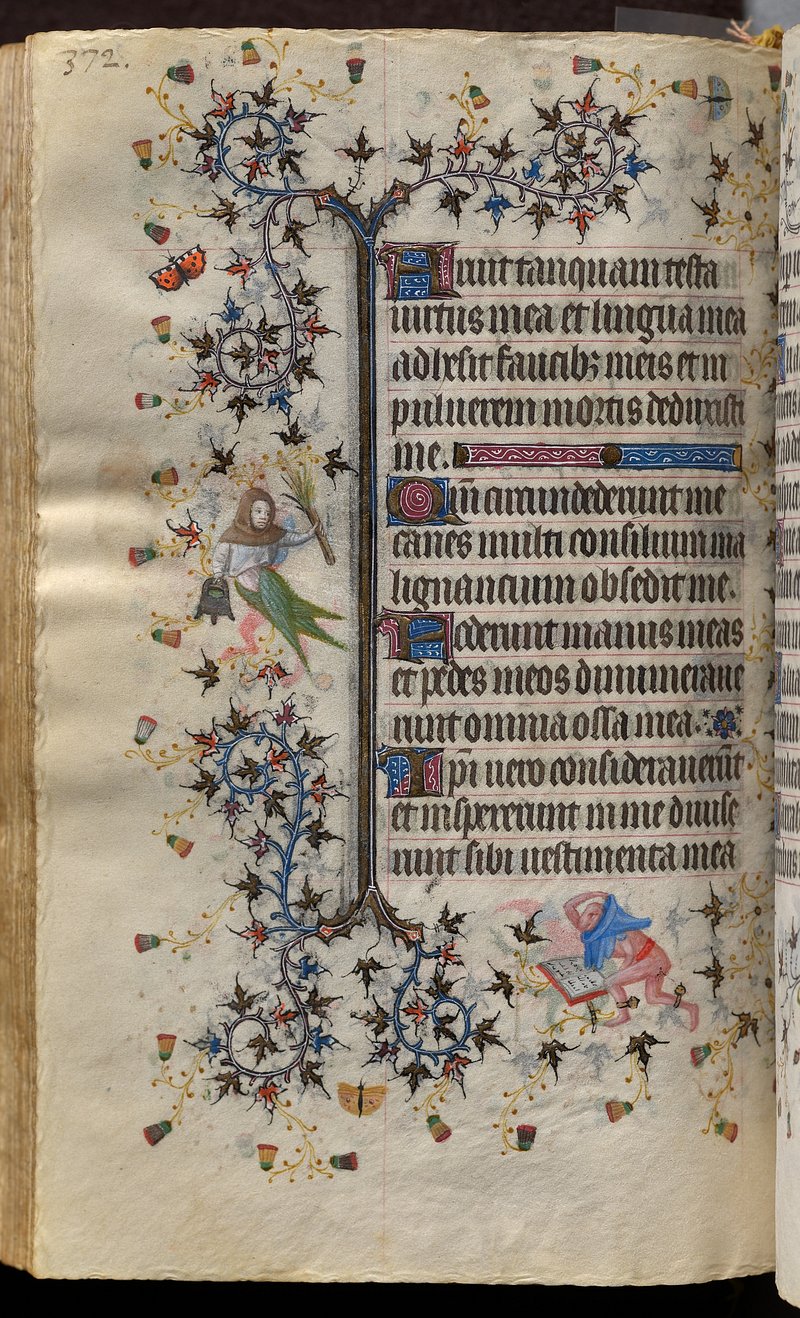 372.
Aruit tanquam testa
uirtus mea et lingua mea
adhesit faucibꝫ meis et in
puluerem mortis deduxisti
me.
Qm̄ circumdederunt me
canes multi consilium ma
lignancium obsedit me.
Foderunt manus meas
et pedes meos dinumeraue
runt omnia ossa mea.
Ip̄i uero considerauerūt
et insperexunt in me diuise
runt sibi uestimenta mea